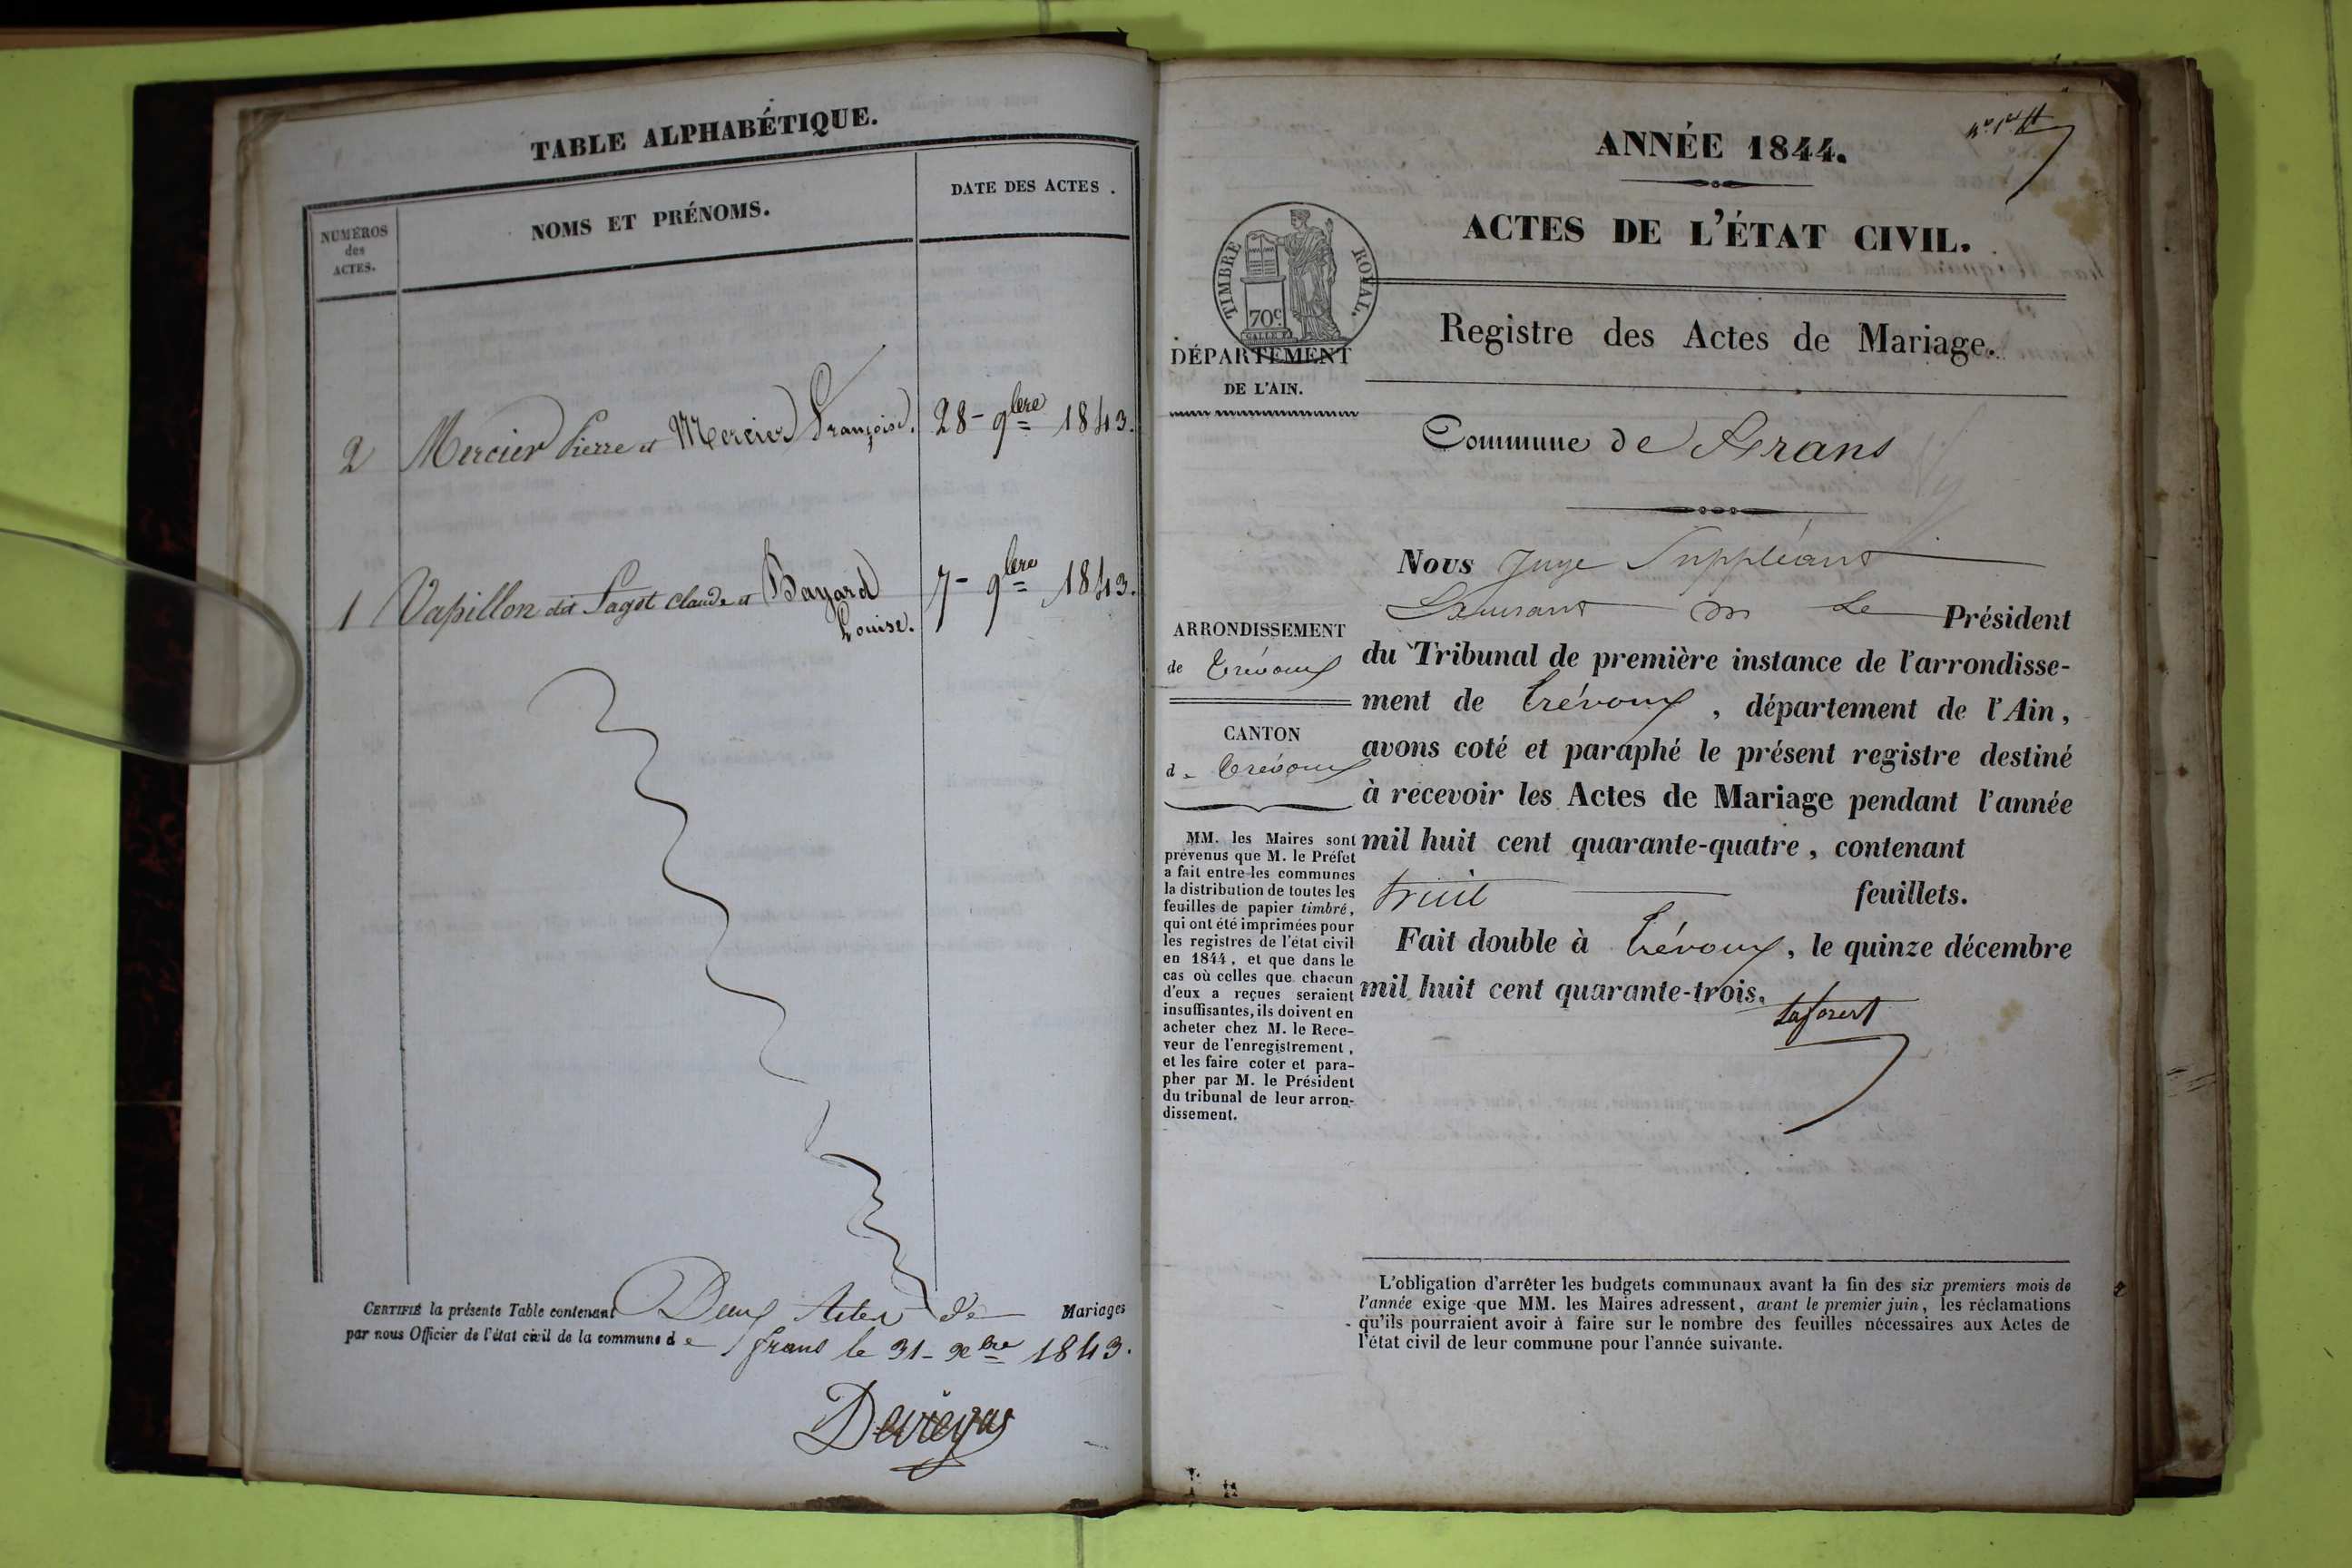 TABLE ALPHABÉTIQUE.
NUMÉROS
des
ACTES.
NOMS ET PRÉNOMS.
DATE DES ACTES.
2 Mercier Pierre et Mercier Françoise. 28 - 9bre 1843.
1 Vapillon dit Pagot Claude et Bayard 7 - 9bre 1843.
Louise.
CERTIFIÉ la présente Table contenant Deux Actes de Mariages
par nous Officier de l'état civil de la commune de frans le 31 - Xbre 1843.
ANNÉE 1844.
ACTES DE L'ÉTAT CIVIL.
TIMBRE ROYAL.
70c
DÉPARTEMENT
DE L'AIN.
Registre des Actes de Mariage.
Commune de frans
ARRONDISSEMENT
de Trévoux
CANTON
de Trévoux
MM. les Maires sont
prévenus que M. le Préfet
a fait entre les communes
la distribution de toutes les
feuilles de papier timbré,
qui ont été imprimées pour
les registres de l'état civil
en 1844, et que dans le
cas où celles que chacun
d'eux a reçues seraient
insuffisantes, ils doivent en
acheter chez M. le Rece-
veur de l'enregistrement,
et les faire coter et para-
pher par M. le Président
du tribunal de leur arron-
dissement.
Nous Juge Suppléant
Le Président
du Tribunal de première instance de l'arrondisse-
ment de Trévoux, département de l'Ain,
avons coté et paraphé le présent registre destiné
à recevoir les Actes de Mariage pendant l'année
mil huit cent quarante-quatre, contenant
huit feuillets.
Fait double à Trévoux, le quinze décembre
mil huit cent quarante-trois.
L'obligation d'arrêter les budgets communaux avant la fin des six premiers mois de
l'année exige que MM. les Maires adressent, avant le premier juin, les réclamations
qu'ils pourraient avoir à faire sur le nombre des feuilles nécessaires aux Actes de
l'état civil de leur commune pour l'année suivante.